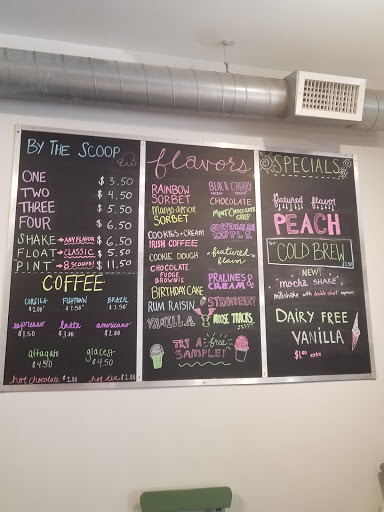 BY THE SCOOP
ONE $3.50
TWO $4.50
THREE $5.50
FOUR $6.50
SHAKE → ANY FLAVOR $6.50
FLOAT → CLASSIC $5.50
PINT → 8 SCOOPS! $11.50
COFFEE
CORSICA FUNTOWN BRAZIL
$2.00 $2.00 $2.50
espresso latte americano
$1.50 $3.00 $2.00
affogato glacest
$4.50 $4.50
hot chocolate $2.00 hot tea $2.00
flavors
RAINBOW SORBET
Mango-Apricot SORBET
COOKIES + CREAM
IRISH COFFEE
COOKIE DOUGH
CHOCOLATE FUDGE BROWNIE
BIRTHDAY CAKE
RUM RAISIN
VANILLA
BLACK CHERRY
CHOCOLATE
MINT CHOCOLATE CHIP
featured flavor
PRALINES & CREAM
STRAWBERRY
MOOSE TRACKS
TRY A free SAMPLE!
SPECIALS
featured flavor
PEACH
COLD BREW
NEW!
mocha SHAKE
milkshake with double shot espresso
DAIRY FREE
VANILLA
$1.00 extra